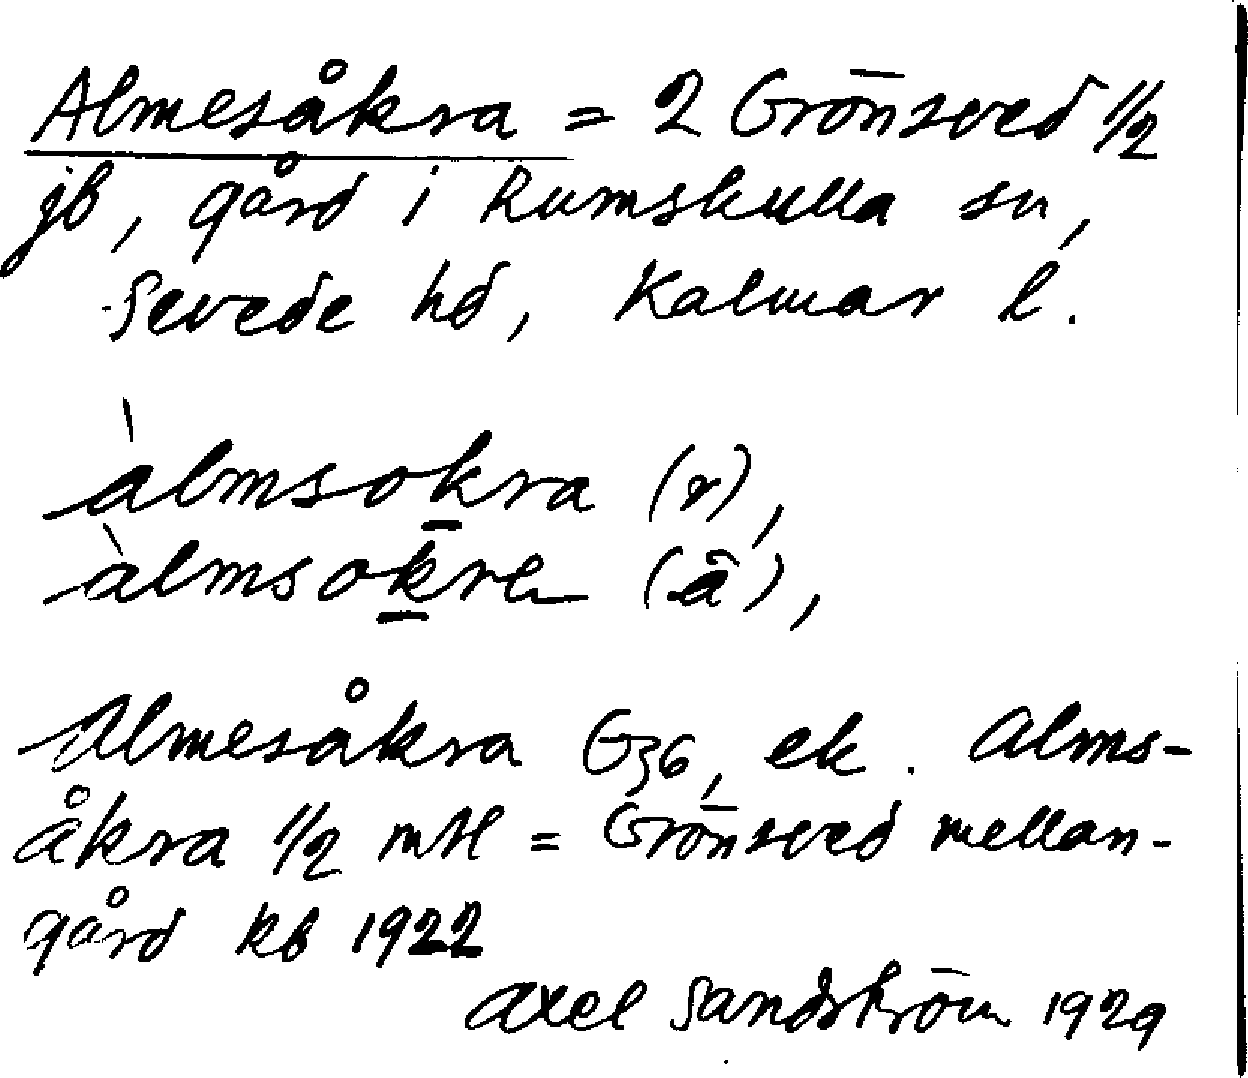 Almesåkra = 2 Grönsved 1/2
jb, gård i Rumskulla sn,
Sevede hd, Kalmar l.
àlmsokra (r),
àlmsokre (â),
Almesåkra G36, ek. Alms-
åkra 1/2 mtl = Grönsved mellan-
gård kb 1922
Axel Sandström 1929